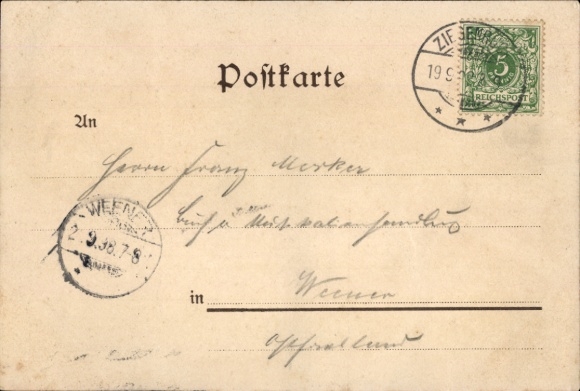 Postkarte
ZIEGENR
19 9
5
REICHSPOST
An
Herrn Franz Merker
Buch u Musikalienhandlung
WEENER
2 9.98.7-8
in Weener
Ostfriesland